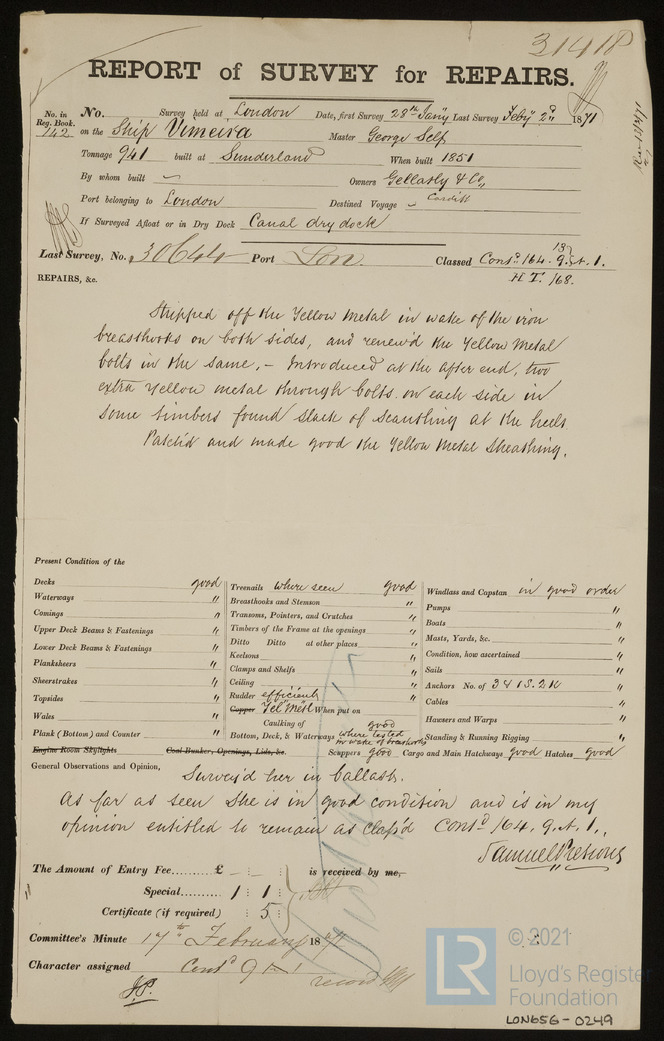 31418
REPORT of SURVEY for REPAIRS.
No. in Reg. Book. No. Survey held at London Date, first Survey 28th Jany Last Survey Feby 2nd 1871
742 on the Ship Vimeira Master George Self
Tonnage 941 built at Sunderland When built 1851
By whom built Owners Gellatly & Co,,
Port belonging to London Destined Voyage Cardiff
If Surveyed Afloat or in Dry Dock Canal dry dock
Last Survey, No. 30644 Port Lon. Classed Contd. 164. 9. A. 1.
13
REPAIRS, &c. H T. /68.
Stripped off the Yellow Metal in wake of the iron
breasthooks on both sides, and renew'd the Yellow Metal
bolts in the same. – Introduced at the after end, two
extra Yellow metal through bolts on each side in
some timbers found slack of scantling at the heels
Patch'd and made good the Yellow Metal Sheathing.
Present Condition of the
Decks good
Waterways "
Comings "
Upper Deck Beams & Fastenings "
Lower Deck Beams & Fastenings "
Planksheers "
Sheerstrakes "
Topsides "
Wales "
Plank (Bottom) and Counter "
Engine Room Skylights
Coal Bunker, Openings, Lids, &c.
Treenails where seen good
Breasthooks and Stemson "
Transoms, Pointers, and Crutches "
Timbers of the Frame at the openings "
Ditto Ditto at other places "
Keelsons "
Clamps and Shelfs "
Ceiling "
Rudder efficient "
Copper Yel Metl When put on
Caulking of good
Bottom, Deck, & Waterways where tested
in wake of breasthooks
Scuppers good Cargo and Main Hatchways good Hatches good
Windlass and Capstan in good order
Pumps "
Boats "
Masts, Yards, &c. "
Condition, how ascertained "
Sails "
Anchors No. of 3 B 1 S. 2 K "
Cables "
Hawsers and Warps "
Standing & Running Rigging "
General Observations and Opinion, Survey'd her in ballast.
As far as seen She is in good condition and is in my
opinion entitled to remain as Class'd Contd 164. 9. A. 1.,
The Amount of Entry Fee £ : - : is received by me,
Special 1 1
Certificate (if required) : 5
Committee's Minute 17th February 1871
Character assigned Contd 9 A 1
record
© 2021
LR
Lloyd's Register
Foundation
LON656-0249